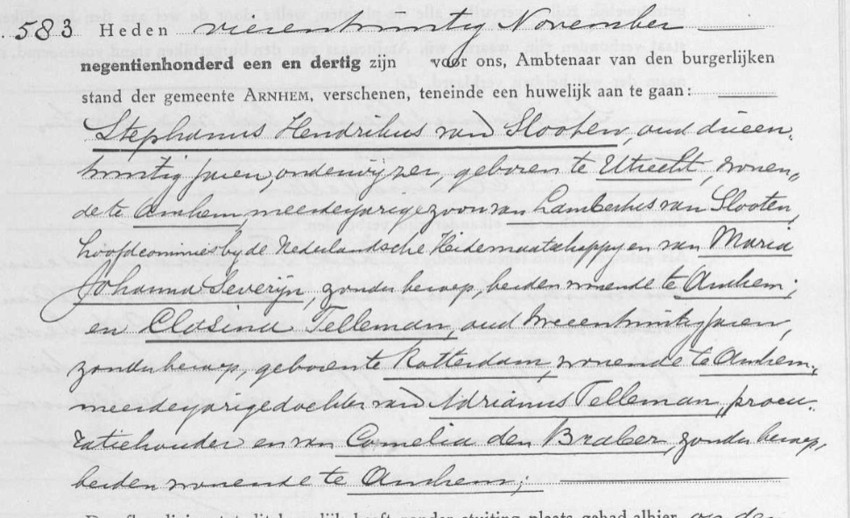 583 Heden vierentwintig November
negentienhonderd een en dertig zijn voor ons, Ambtenaar van den burgerlijken
stand der gemeente ARNHEM, verschenen, teneinde een huwelijk aan te gaan:
Stephanus Hendrikus van Slooten, oud drieen-
twintig jaren, onderwijzer, geboren te Utrecht, wonen-
de te Arnhem, meerderjarige zoon van Lambertus van Slooten,
hoofdcommies bij de Nederlandsche Heidemaatschappij en van Maria
Johanna Severijn, zonder beroep, beiden wonende te Arnhem;
en Clasina Telleman, oud tweeentwintig jaren,
zonder beroep, geboren te Rotterdam, wonende te Arnhem,
meerderjarige dochter van Adrianus Telleman, procu-
ratiehouder en van Cornelia den Braber, zonder beroep,
beiden wonende te Arnhem;